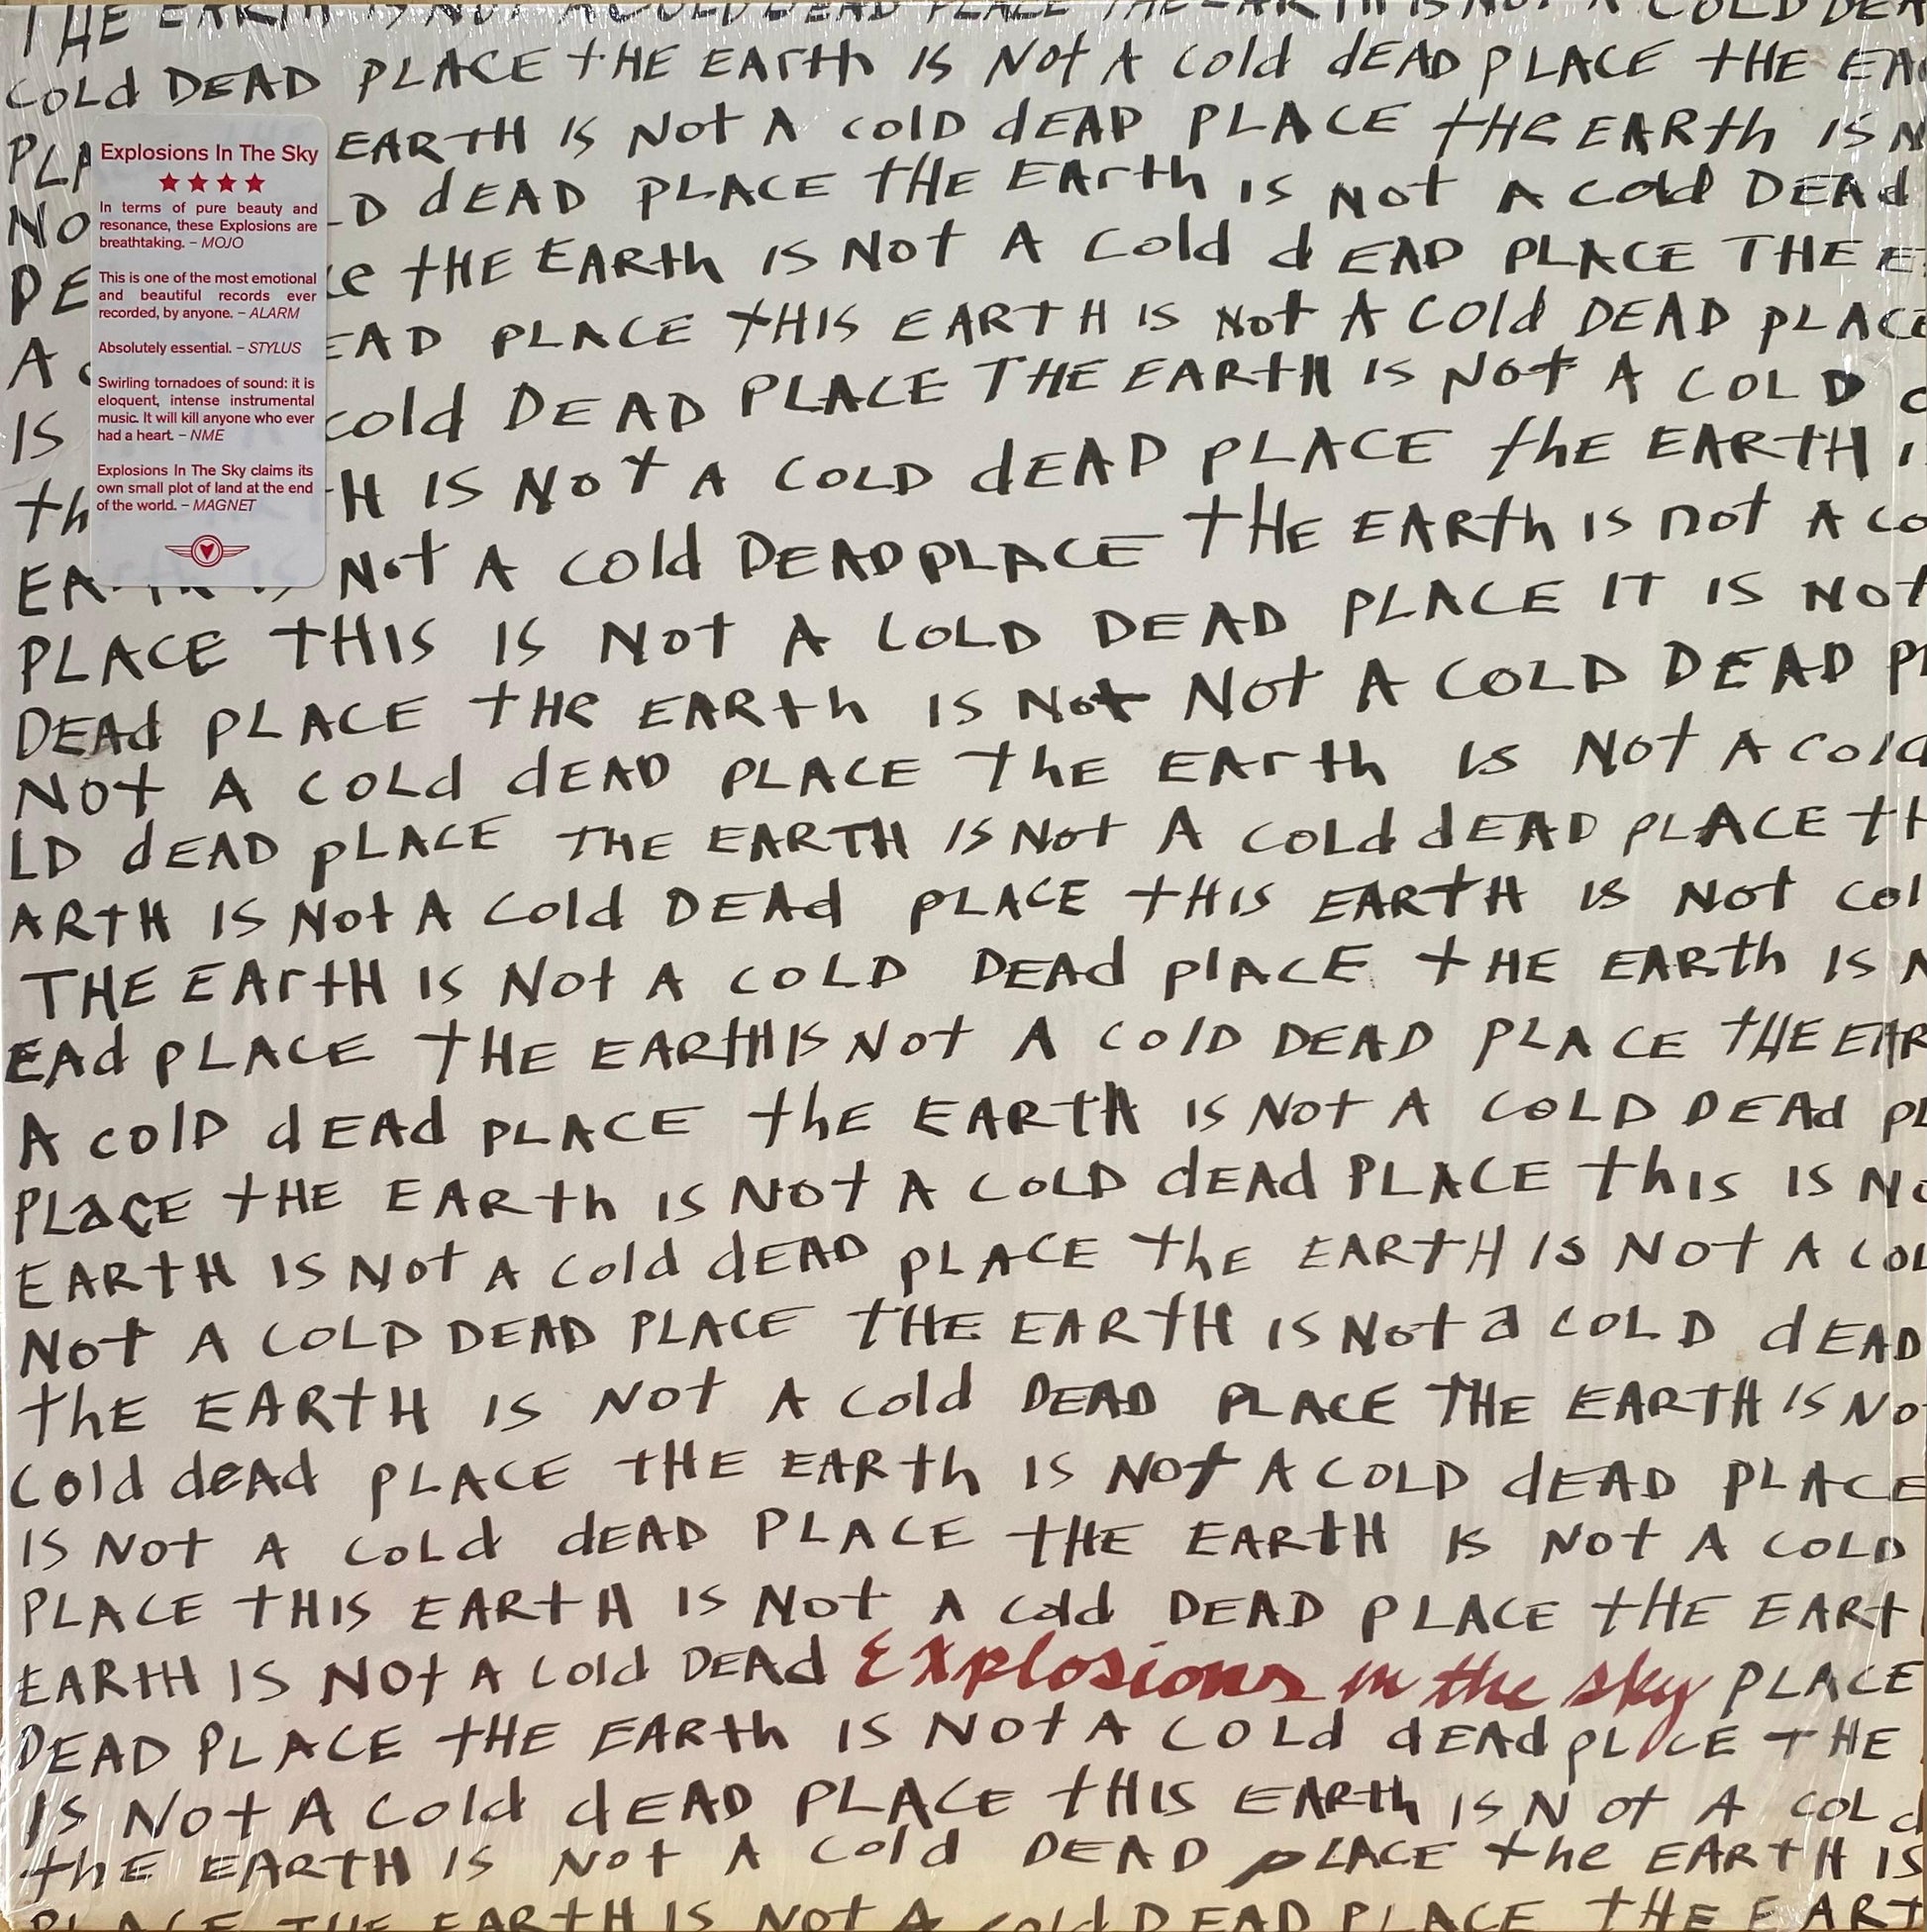 THE EARTH IS NOT A COLD DEAD PLACE THE EARTH IS NOT A COLD DEA
COLd DEAD PLACE tHE EArth IS Not A Cold dEAD PLACE tHE EA
PLA EARTH IS Not A colD dEAD PLACE tHe EARth IS N
NO LD dEAD PLACE tHE EArth IS Not A Cold DEAd
DE ce tHE EARth IS Not A Cold d EAD PLACE THE E
A EAD PLACE tHIS EARTH IS Not A Cold DEAD pLACE
IS cold DEAD PLACE THE EARtH IS Not A COLD
th H IS Not A COLD dEAD PLACE thE EARtH
EA Not A Cold DEAD PLACE tHE EARth IS not A Co
PLACE tHIS IS Not A COLD DEAD PLACE IT IS Not
DEAd pLACE tHe EARth IS Not Not A COLD DEAD Pl
Not A COLd dEAD PLACE thE EArth IS Not A Cold
LD dEAD pLACE THE EARTH IS Not A COLd dEAD PLACE tH
ARtH IS Not A Cold DEAd pLACE tHIS EARtH IS Not Col
THE EArtH IS Not A COLD DEAd plACE tHE EARth IS N
EAd pLACE tHE EARtH IS Not A ColD DEAD PLACE tHE EAR
A colD dEAd pLACE thE EARtH IS Not A COLD DEAd pL
PLaCE tHE EARth IS Not A COLD dEAd PLACE thIS IS No
EARtH IS Not A Cold dEAD pLACE thE EARtH IS Not A COL
Not A COLD DEAD PLACE tHE EARtH IS Not a COLD dEAD
thE EARtH IS Not A Cold DEAD PLACE THE EARTH IS No
Cold deAd pLACE tHE EARth IS Not A COLD dEAD PLACE
IS Not A COLd dEAD PLACE tHE EARtH IS Not A COLD
PLACE tHIS EARtH IS Not A Cold DEAD PLACE tHE EARt
EARtH IS NOt A Cold DEAd Explosions in the sky PLACE
DEAD PLACE tHE EARth IS Not A COLd dEAd pLACE THE
IS Not A Cold dEAD PLACE tHIS EARth IS Not A COLd
thE EARtH IS Not A Cold DEAD pLACE the EARtH IS
PLACE THE EARtH IS Not A Cold DEAD PLACE tHE EARt
Explosions In The Sky
★★★★
In terms of pure beauty and
resonance, these Explosions are
breathtaking. – MOJO
This is one of the most emotional
and beautiful records ever
recorded, by anyone. – ALARM
Absolutely essential. – STYLUS
Swirling tornadoes of sound: it is
eloquent, intense instrumental
music. It will kill anyone who ever
had a heart. – NME
Explosions In The Sky claims its
own small plot of land at the end
of the world. – MAGNET